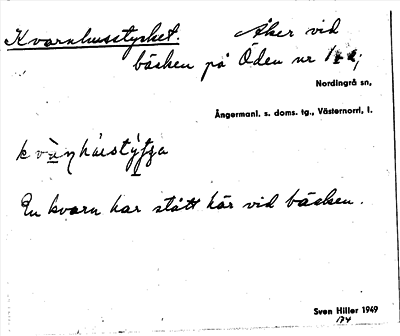 Kvarnhusstycket. Åker vid
bäcken på Öden nr
Nordingrå sn,
Ångermanl. s. doms. tg., Västernorrl, l.
En kvarn har stått här vid bäcken.
Sven Hiller 1949
174